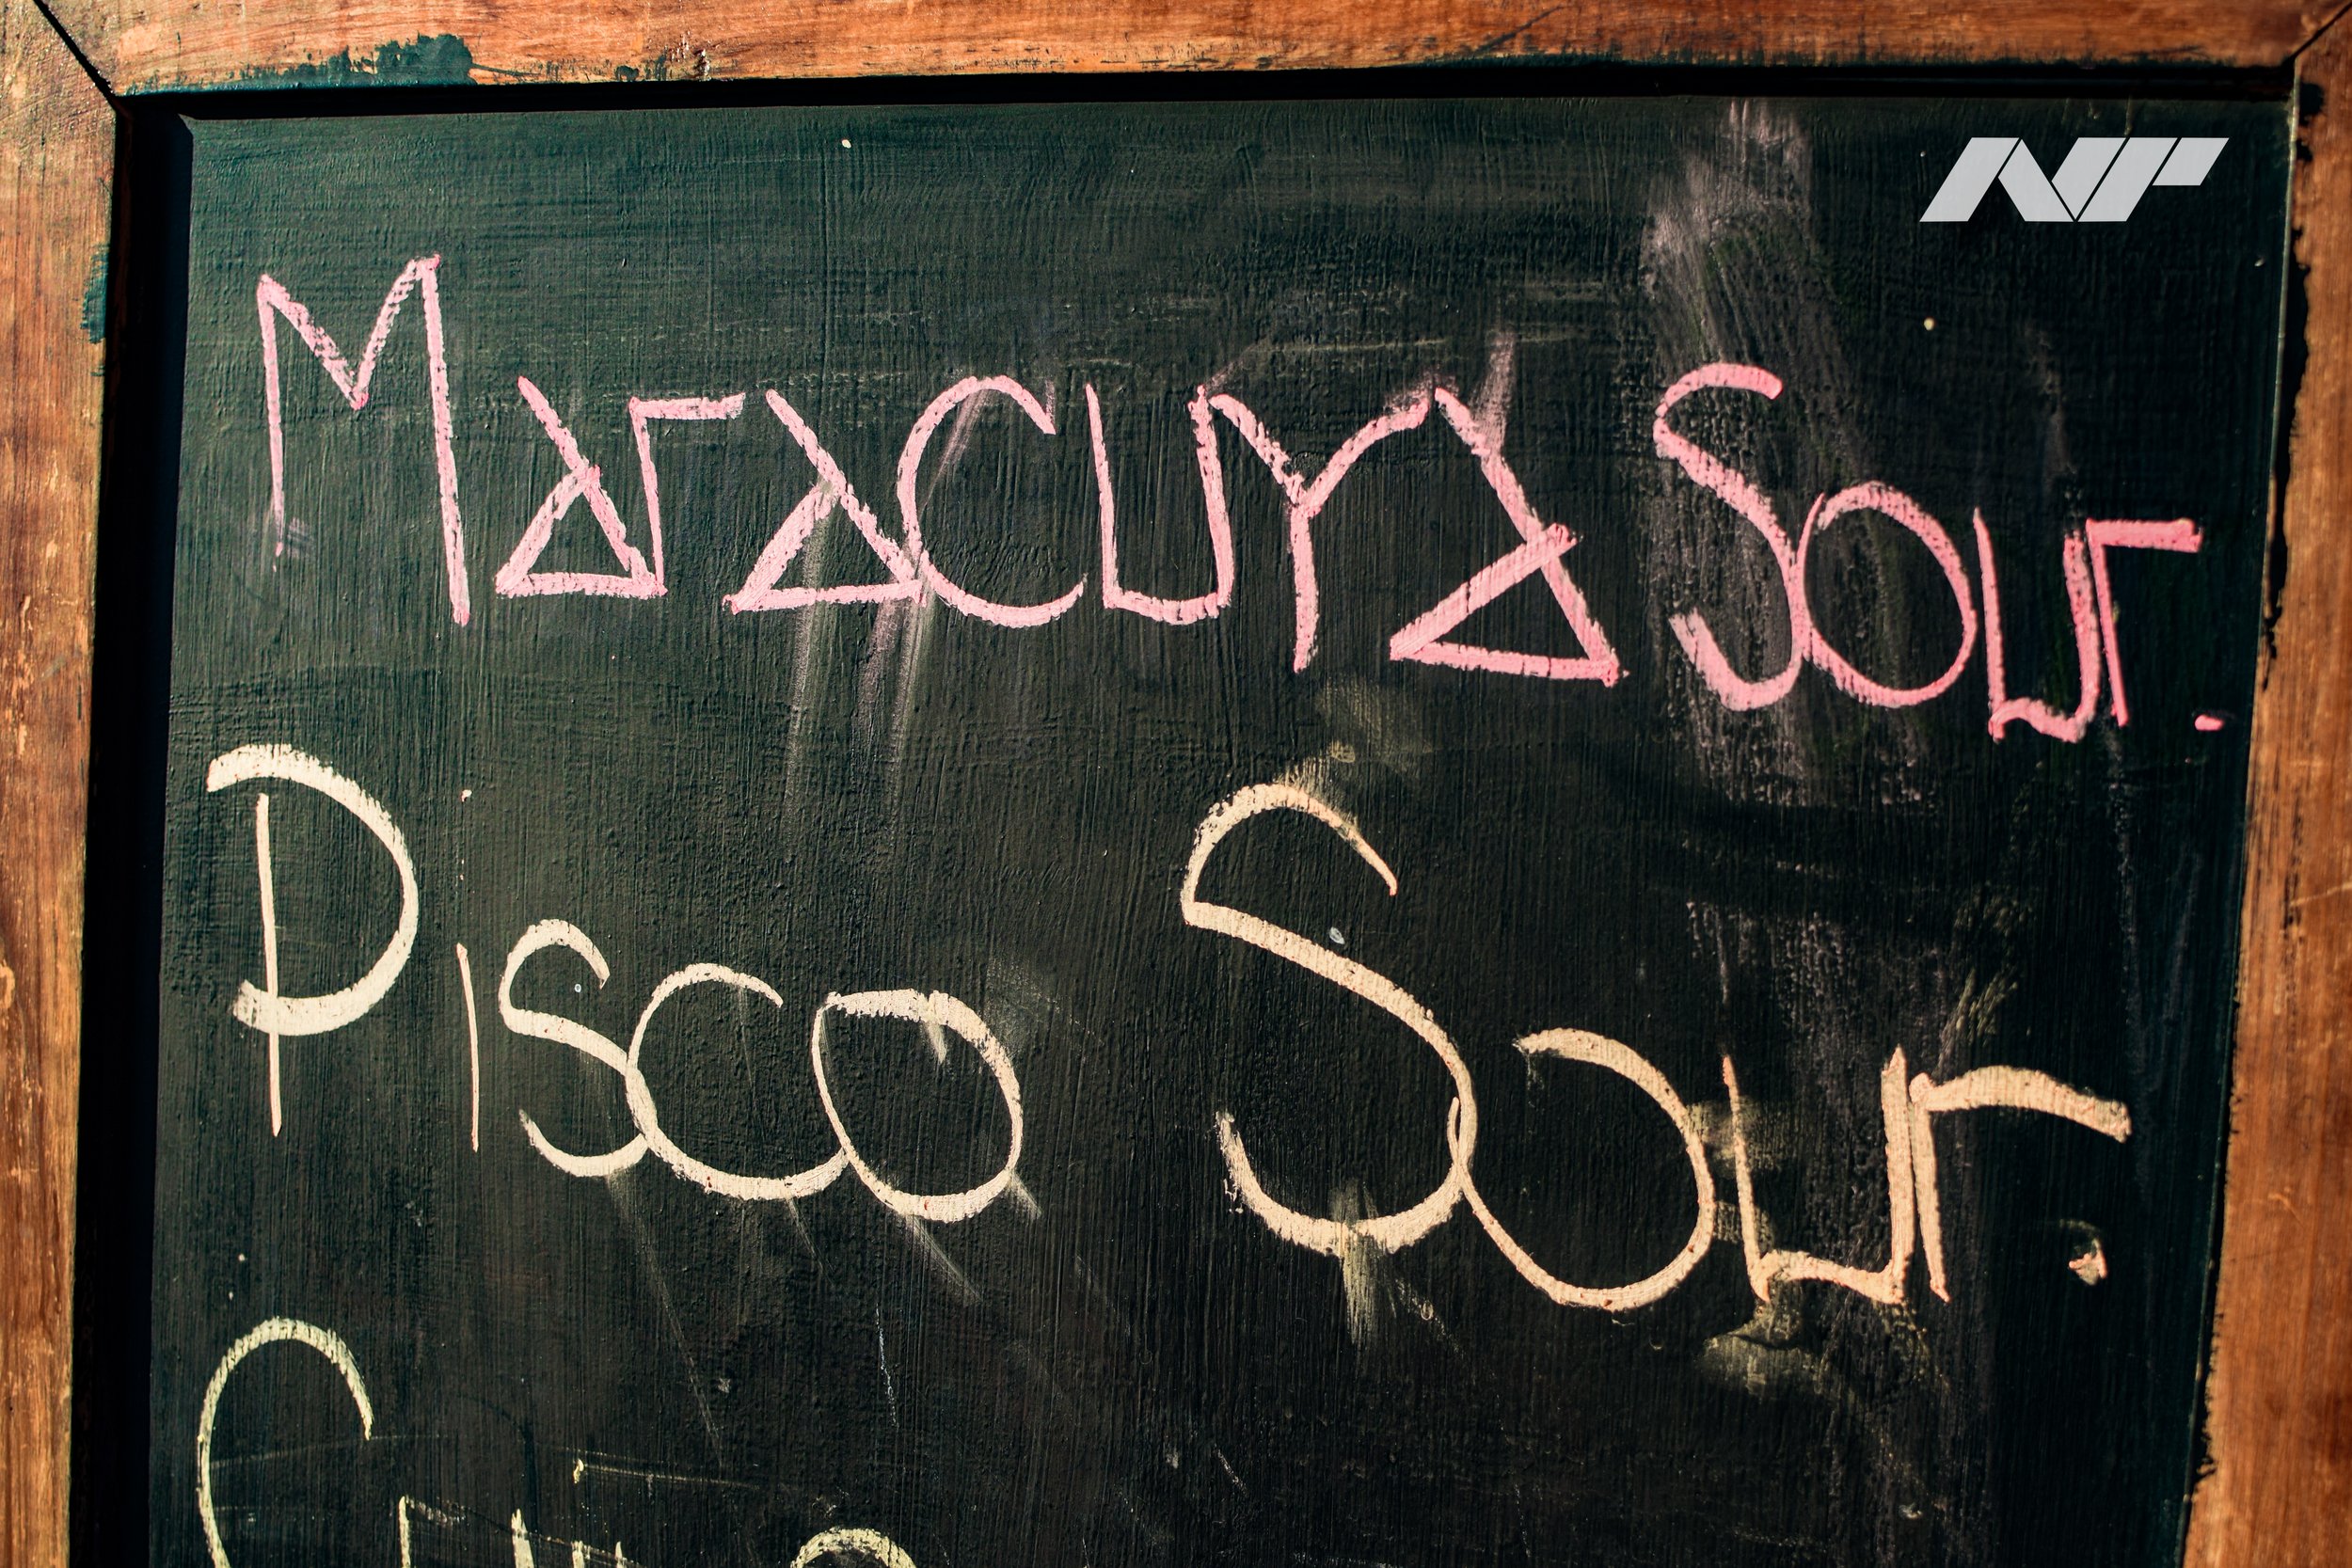 Maracuya Sour.
Pisco Sour.